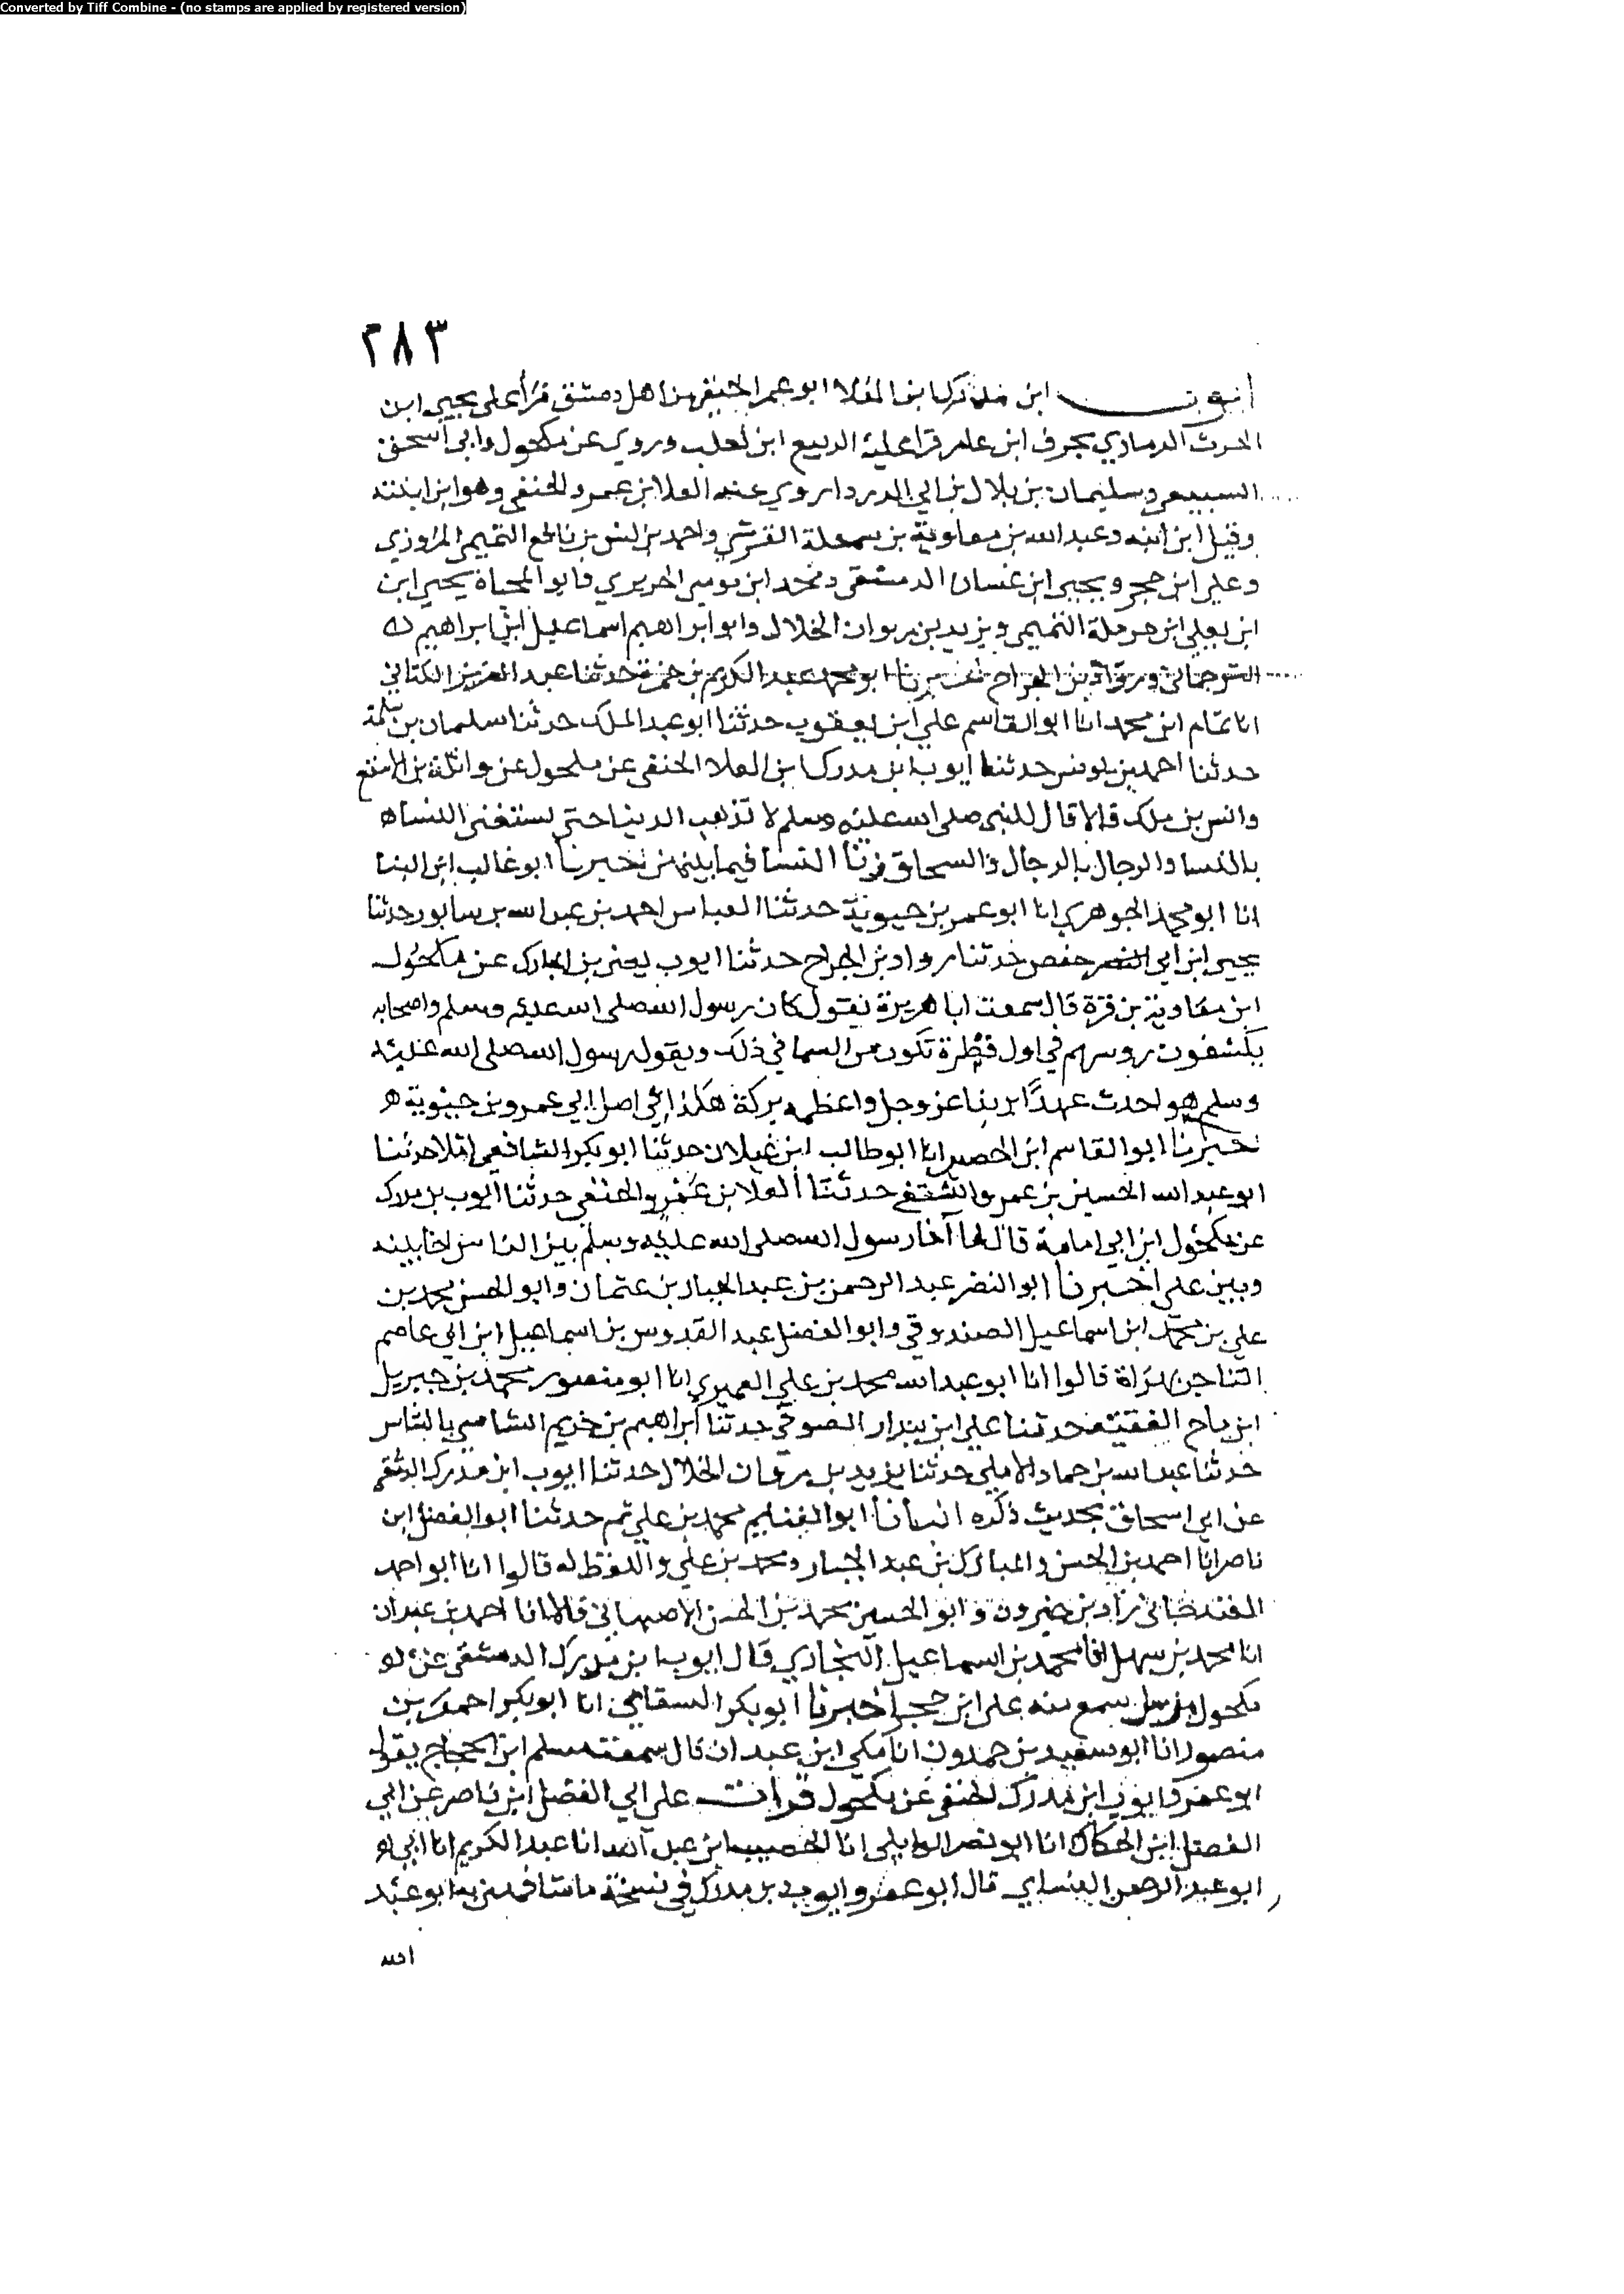 Converted by Tiff Combine - (no stamps are applied by registered version)
٢٨٣
أيوب ابن مدرك ابن العلا ابو عمر الحنفي من اهل دمشق قرأ على يحيى ابن
الحرث الدماري بحرف ابن عامر قرا عليه الربيع ابن تعلب وروي عن مكحول وابي اسحق
السبيعي وسليمان بن بلال بن ابي الدردا روي عنه العلا بن عمرو الحنفي وهو ابن ابنته
وقيل ابن ابنه وعبد الله بن معاوية بن القرشي واحمد بن انس بن نافع التميمي المروزي
وعلي ابن حجر ويحيى ابن غسان الدمشقي ومحمد ابن موسى الحريري وابو المحياة يحيى ابن
ابن يعلى ابن حرملة التميمي ويزيد بن مروان الخلال وابو ابراهيم اسماعيل ابن ابراهيم
الترجماني ورواد بن الجراح اخبرنا ابو محمد عبد الكريم بن حمزة حدثنا عبد العزيز الكتاني
انا تمام ابن محمد انا ابو القاسم علي ابن يعقوب حدثنا ابو عبد الملك حدثنا سليمان بن سلمة
حدثنا احمد بن يونس حدثنا ايوب ابن مدرك ابن العلا الحنفي عن مكحول عن واثلة بن الاسقع
وانس بن ملك قالا قال للنبي صلى الله عليه وسلم لا تذهب الدنيا حتى يستغني النساء
بالنسا والرجال بالرجال والسحاق زنا النسا فيما بينهن اخبرنا ابو غالب ابن البنا
انا ابو محمد الجوهري انا ابو عمر بن حيوية حدثنا العباس احمد بن عبد الله بن سابور حدثنا
يحيى ابن ابي حفص حدثنا رواد بن الجراح حدثنا ايوب يعني بن المبارك عن مكحول
ابن معاوية بن قرة قال سمعت ابا هريرة يقول كان رسول الله صلى الله عليه وسلم واصحابه
يكشفون روسهم في اول قطرة تكون من السما في ذلك ويقول رسول الله صلى الله عليه
وسلم هو احدث عهدًا بربنا عز وجل واعظمه بركة هكذا في اصل ابي عمرو بن حيوية
اخبرنا ابو القاسم ابن الحصين انا ابو طالب ابن غيلان حدثنا ابو بكر الشافعي املا حدثنا
ابو عبد الله الحسين بن عمر حدثنا العلا بن عمرو الحنفي حدثنا ايوب بن مدرك
عن مكحول ابن ابي امامة قال لما آخا رسول الله صلى الله عليه وسلم بين الناس اخا بينه
وبين علي اخبرنا ابو النضر عبد الرحمن بن عبد الجبار بن عثمان وابو الحسن محمد بن
علي بن محمد ابن اسماعيل الصندوقي وابو الفضل عبد القدوس بن اسماعيل ابن ابي عاصم
التاجر بهراة قالوا انا ابو عبد الله محمد بن علي العميري انا ابو منصور محمد بن جبريل
ابن الفقيه حدثنا علي ابن بندار الصوفي حدثنا ابراهيم بن خريم الشاسي بالشاس
حدثنا عبد الله بن حماد الاملي حدثنا يزيد بن مروان الخلال حدثنا ايوب ابن مدرك الدمشقي
عن ابي اسحاق بحديث ذكره انبانا ابو الغنايم محمد بن علي ثم حدثنا ابو الفضل ابن
ناصر انا احمد بن الحسن والمبارك بن عبد الجبار ومحمد بن علي واللفظ له قالوا انا ابو احمد
زاد بن خيرون وابو الحسين محمد بن الحسن الاصبهاني قالا انا احمد بن عبدان
انا محمد بن سهل انا محمد بن اسماعيل البخاري قال ايوب ابن مدرك الدمشقي عن
مكحول مرسل سمع منه علي ابن حجر اخبرنا ابو بكر انا ابو بكر احمد بن
منصور انا ابو سعيد بن حمدون انا مكي ابن عبدان قال سمعت مسلم ابن الحجاج يقول
ابو عمرو ايوب ابن مدرك الحنفي عن مكحول قرات على ابي الفضل ابن ناصر عن ابي
الفضل ابن الحكاك انا ابو نصر الوايلي انا الخصيب ابن عبد الله انا عبد الكريم انا ابي
ابو عبد الرحمن النساي قال ابو عمرو ايوب بن مدرك في نسخة ابو عبد
الله